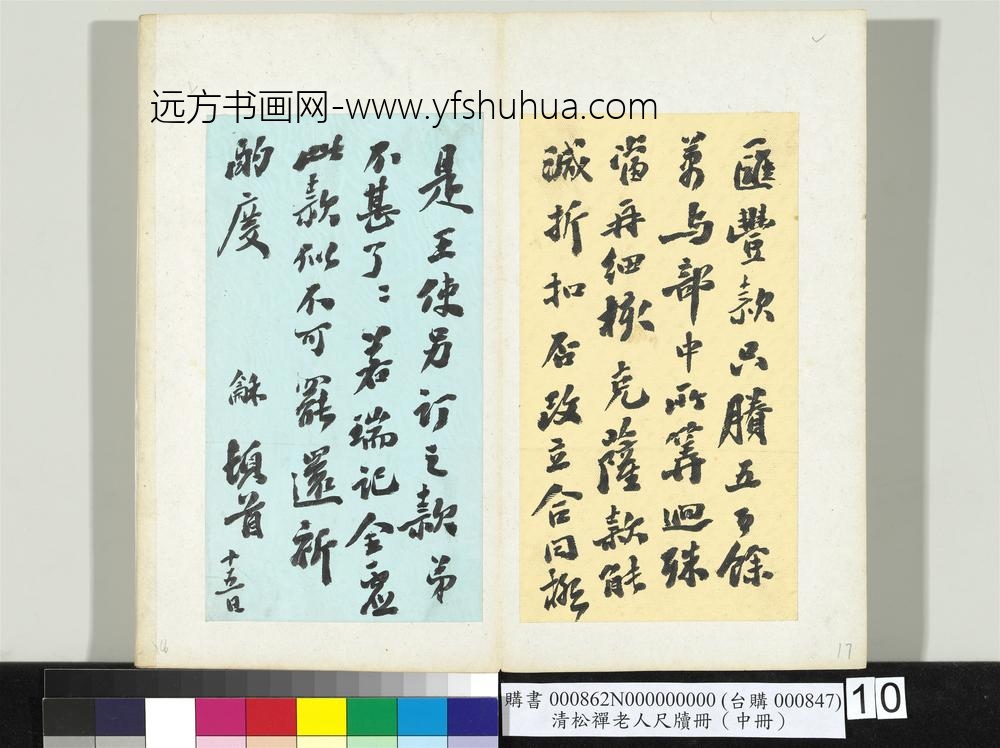 远方书画网-www.yfshuhua.com
匯豐款只賸五百餘
萬与部中所算迥殊
當再細檢克薩款能
減折扣否改立合同概
是王使另訂之款弟
不甚了〻若瑞记全虚
此款似不可罷還祈
酌度 龢 頓首 十五日
16
17
購書 000862N000000000 (台購 000847)
清松禪老人尺牘冊（中冊）
10